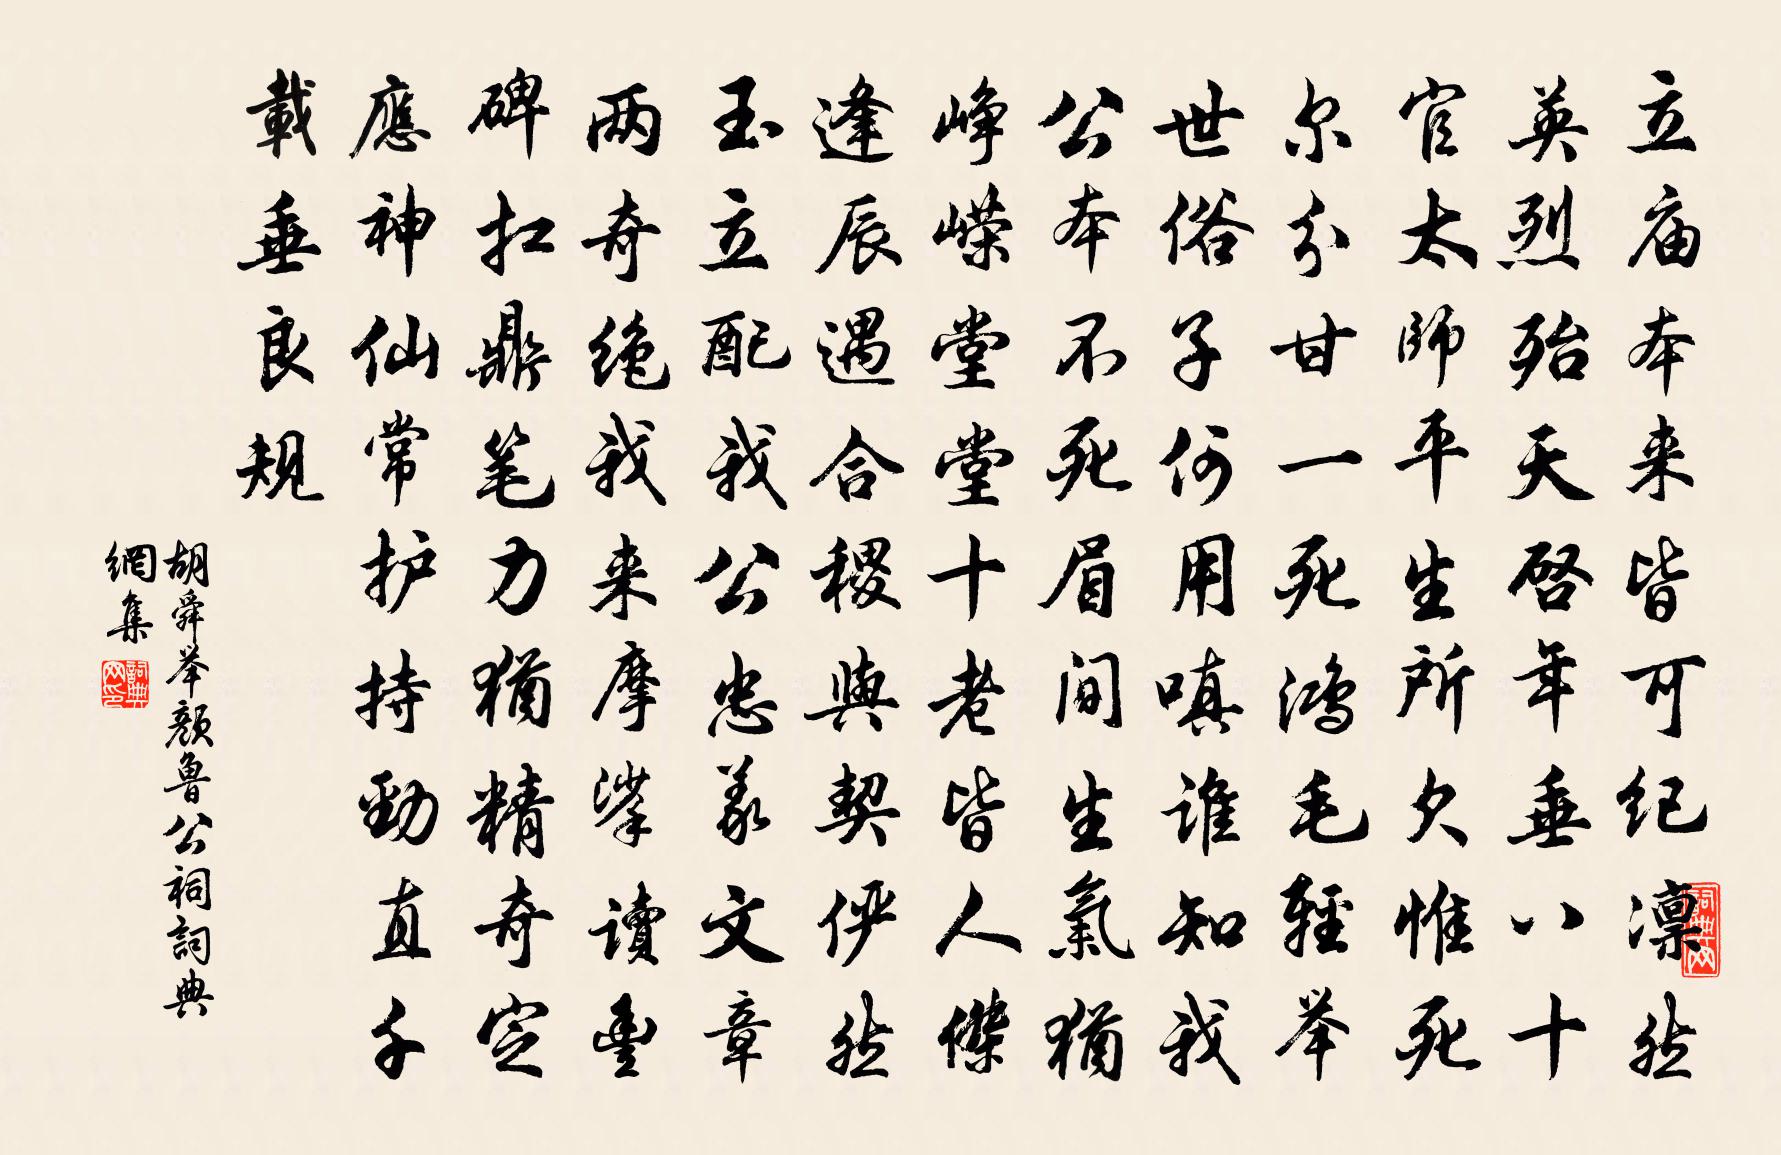 立庙本来皆可纪凛然
英烈殆天啓年垂八十
官太師平生所欠惟死
尔分甘一死鸿毛輕举
世俗子何用嗔谁知我
公本不死眉间生氣猶
峥嵘堂堂十老皆人傑
逢辰遇合稷與契俨然
玉立配我公忠義文章
两奇绝我来摩挲讀豊
碑扛鼎笔力猶精奇定
應神仙常护持勁直千
載垂良规
胡舜举颜魯公祠詞典
網集